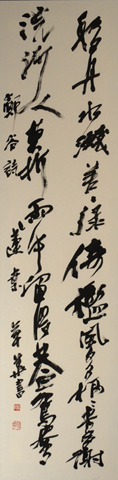 移舟水濺差々緑倚檻風多柄々香多謝
浣沙人莫折雨中留得蓋鴛鴦
鄭谷詩 蓮葉
書